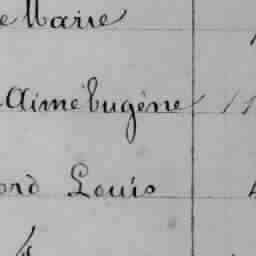 e Marie
Aimé Eugène 11
ord Louis